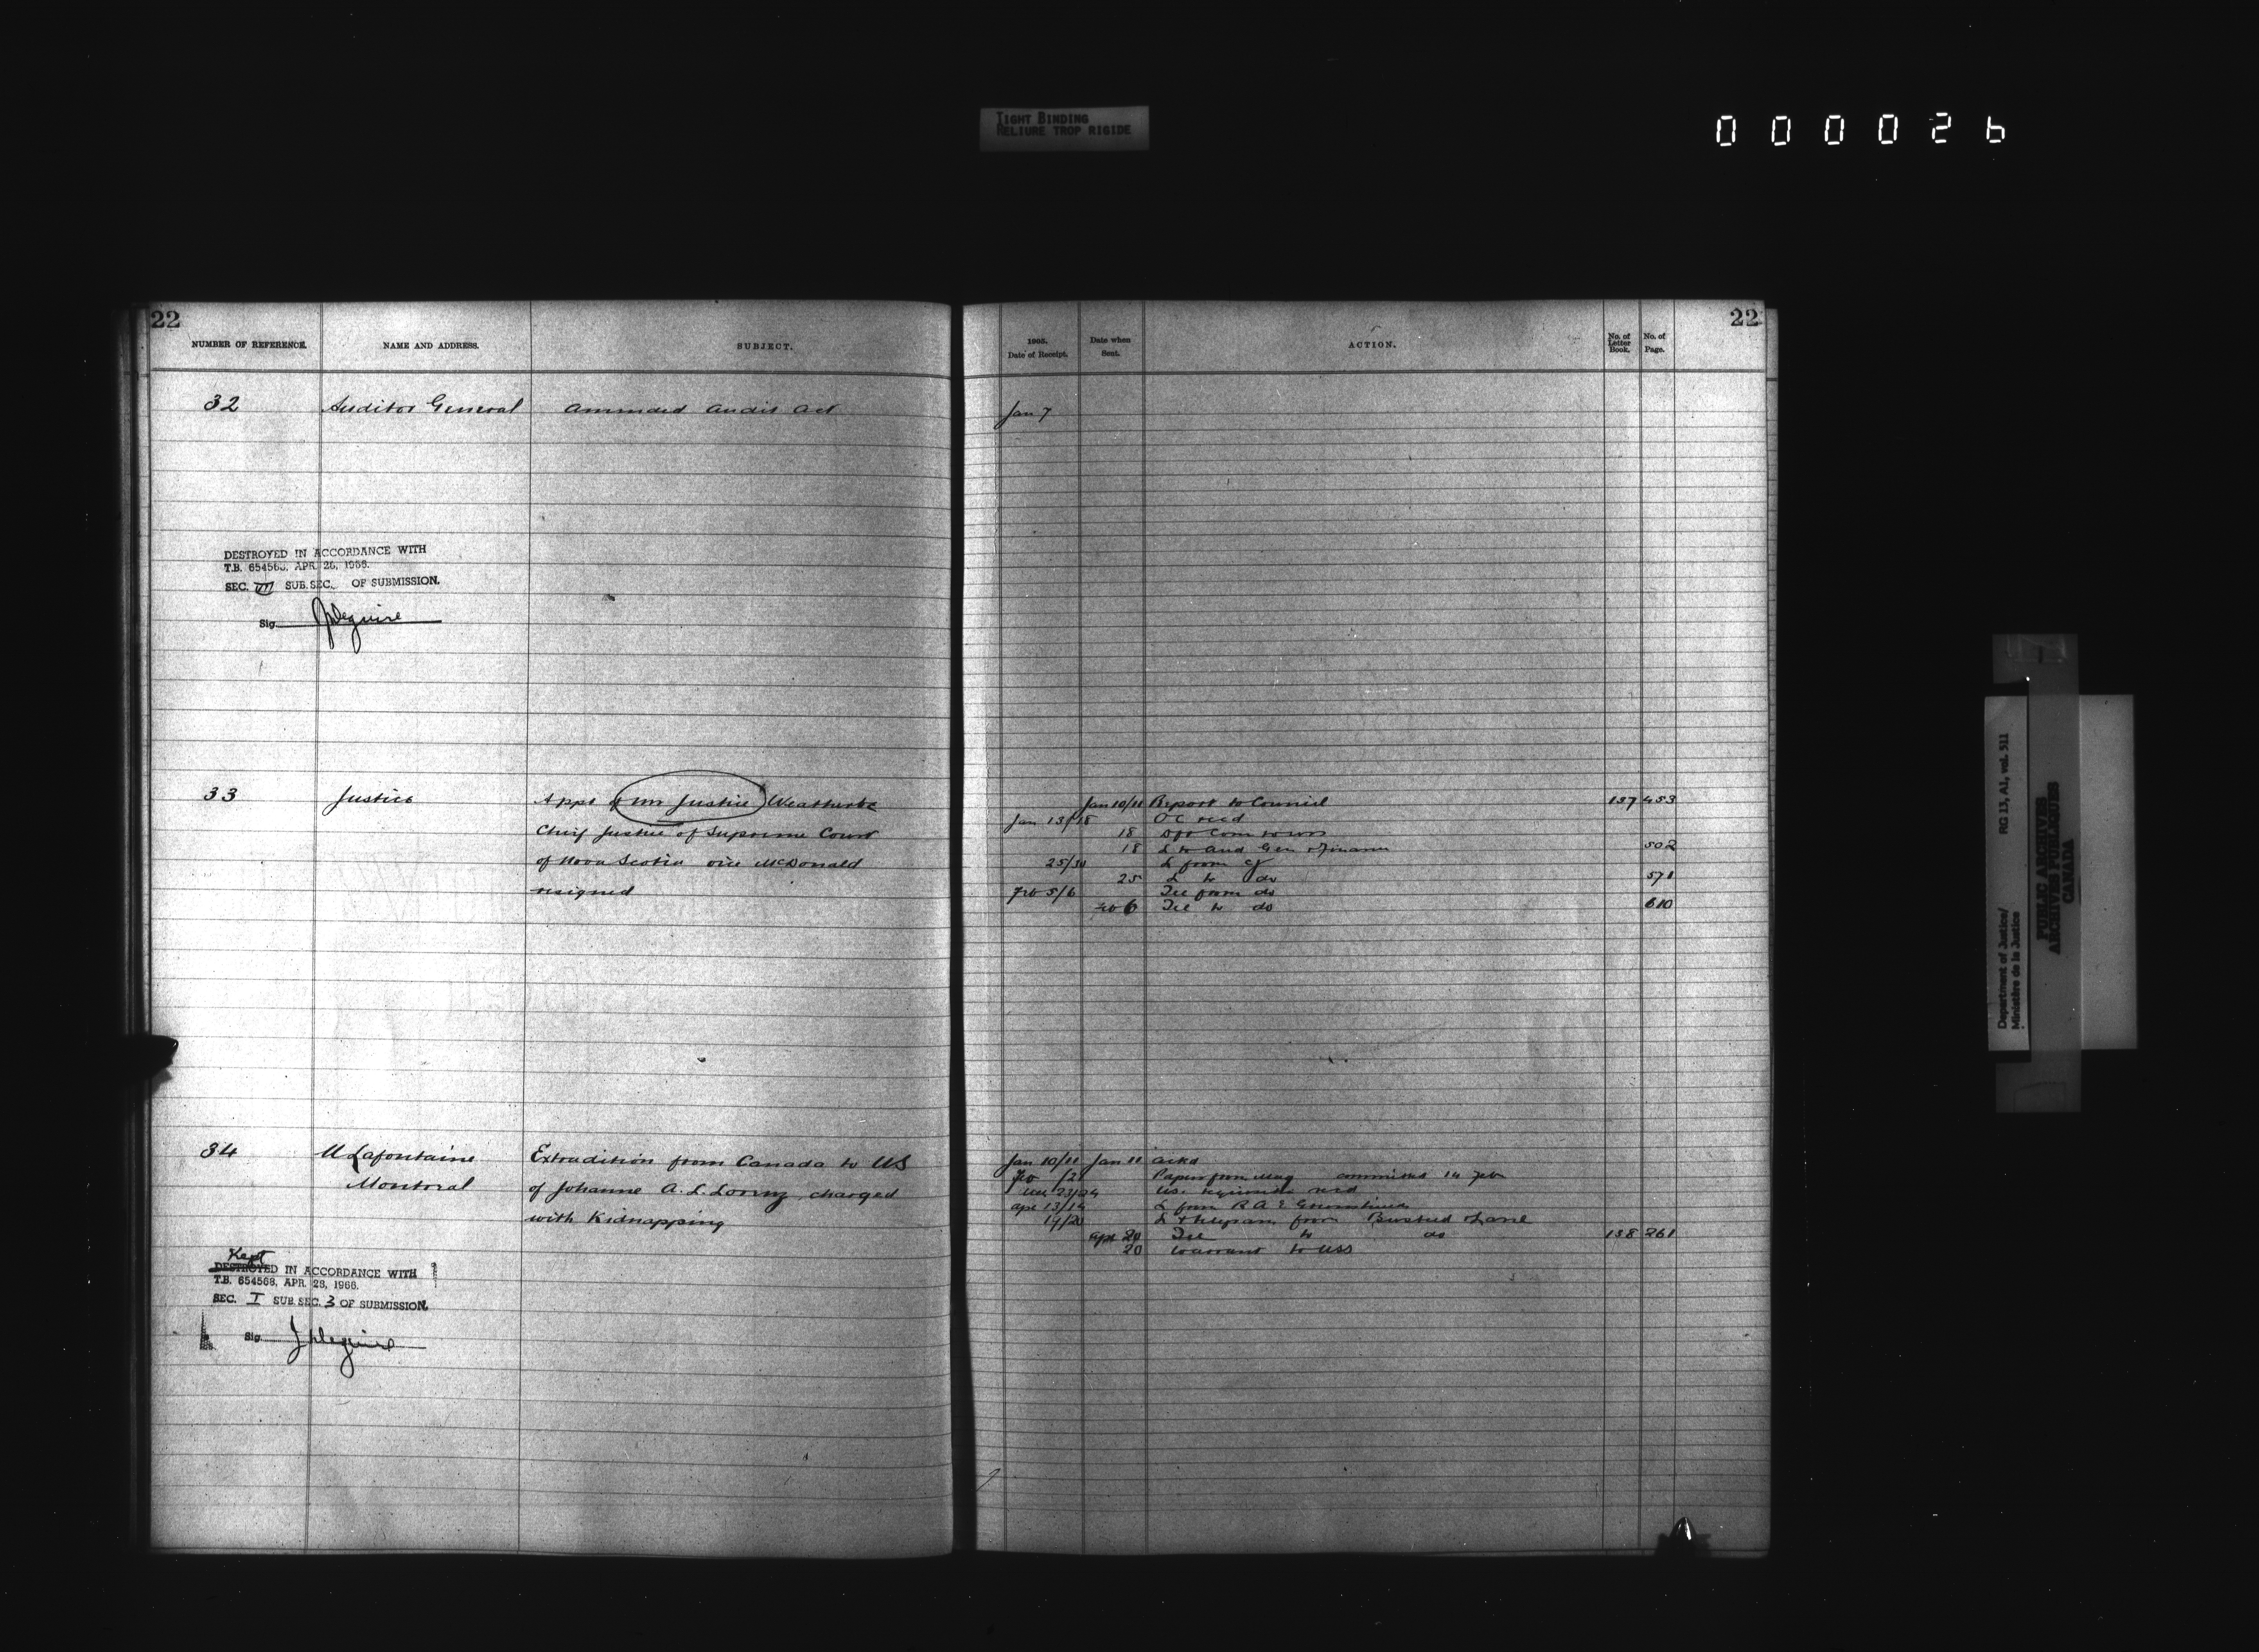 TIGHT BINDING
RELIURE TROP RIGIDE
000026
22
NUMBER OF REFERENCE. NAME AND ADDRESS. SUBJECT.
32 Auditor General Amended Audit Act
DESTROYED IN ACCORDANCE WITH
T.B. 654568, APR. 26, 1966.
SEC. VII SUB.SEC. OF SUBMISSION.
Sig.
33 Justice Appt of Mr Justice Weatherbe
Chief Justice of Supreme Court
of Nova Scotia vice McDonald
resigned
34 U Lafontaine Extradition from Canada to US
Montreal of Johanne A. L. Lorenz, charged
with Kidnapping
Kept
DESTROYED IN ACCORDANCE WITH
T.B. 654568, APR. 28, 1966.
SEC. I SUB.SEC. 3 OF SUBMISSION.
Sig.
22
1905. Date of Receipt. Date when Sent. ACTION. No. of Letter Book. No. of Page.
Jan 7
Jan 10/11 Report to Council 137 453
Jan 13/18 OC recd
18
18 L to Aud Gen 502
25/30 L from CJ
25 L to do 571
Feb 5/6 Tel from do
Feb 6 Tel to do 610
Jan 10/11 Jan 11 Ackd
Feb /21 Papers from Mag commital 14 Feb
23/24 US
Apr 13/14 L from R A E Greenshields
19/20 L & telegram from
Apr 20 Tel to do 138 261
20 Warrant to USS
Department of Justice/ RG 13, A1, vol. 511
Ministère de la Justice
PUBLIC ARCHIVES
ARCHIVES PUBLIQUES
CANADA